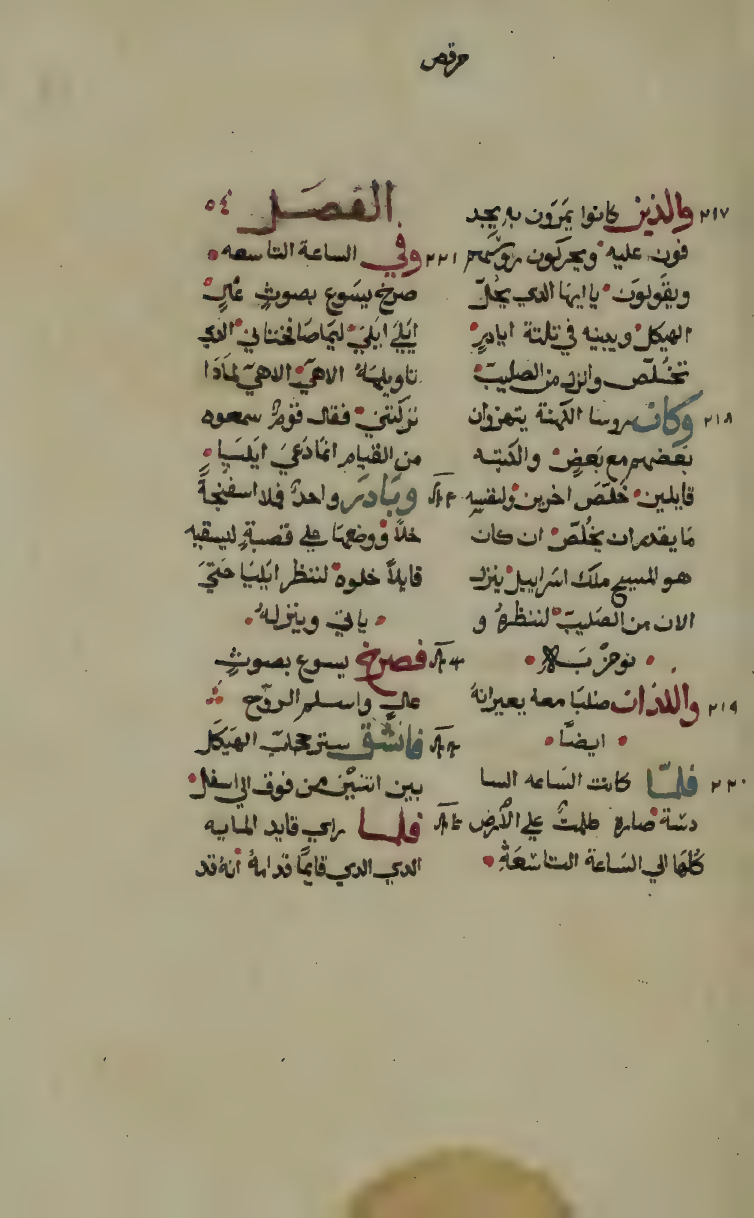 مرقص
٢١٧ والذين كانوا يمرون به يجد
فون عليه ويحركون روسهم
ويقولون يا ايها الدي يحل
الهيكل ويبنيه في تلتة ايام
تخلص وانزل من الصليب
٢١٨ وكان روسا الكهنة يتهزوان
بعضهم مع بعض والكتبه
قايلين خلص اخرين ولنفسه
ما يقدر ان يخلص ان كان
هو المسيح ملك اسراييل ينزل
الان من الصليب لننظره و
نومن به
٢١٩ واللذان صلبا معه يعيرانه
ايضا
٢٢٠ فلما كانت الساعه السا
دسة صاره ظلمت علي الارض
كلها الي الساعة التاسعة
الفصل ٥٤
٢٢١ وفي الساعة التاسعه
صرخ يسوع بصوت
ايلي ايلي ليماصا فختاني الدي
تاويله الاهي الاهي لمادا
تركتني فقال قوم سمعوه
من القيام انما دعي ايليا
وبادر واحد فلا اسفنجة
خلا ووضعها علي قصبة ليسقيه
قايلا خلوه لننظر ايليا حتي
ياتي وينزله
فصرخ يسوع بصوت
عال واسلم الروح
فانشق ستر حجاب الهيكل
بين اتنين من فوق الي اسفل
فلما راي قايد المايه
الدي الدي قايما قدامه انه قد